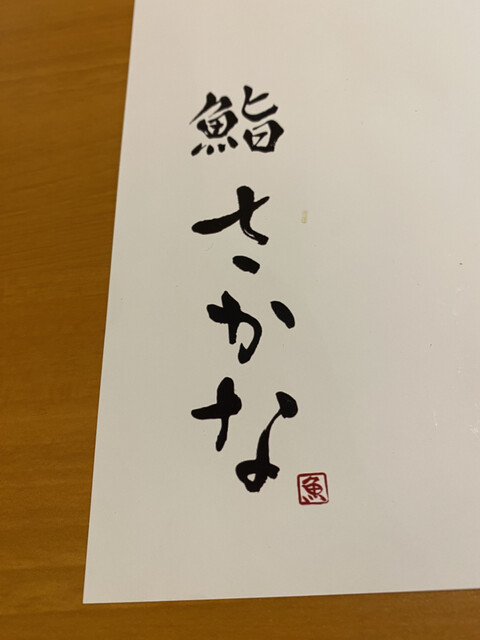 鮨
さかな
魚